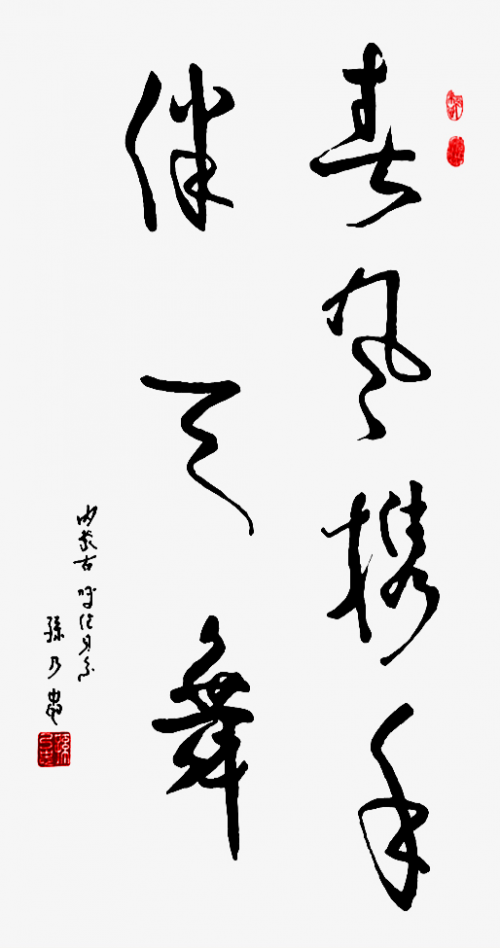 春风携手
伴天舞
内蒙古呼伦贝尔
孫乃